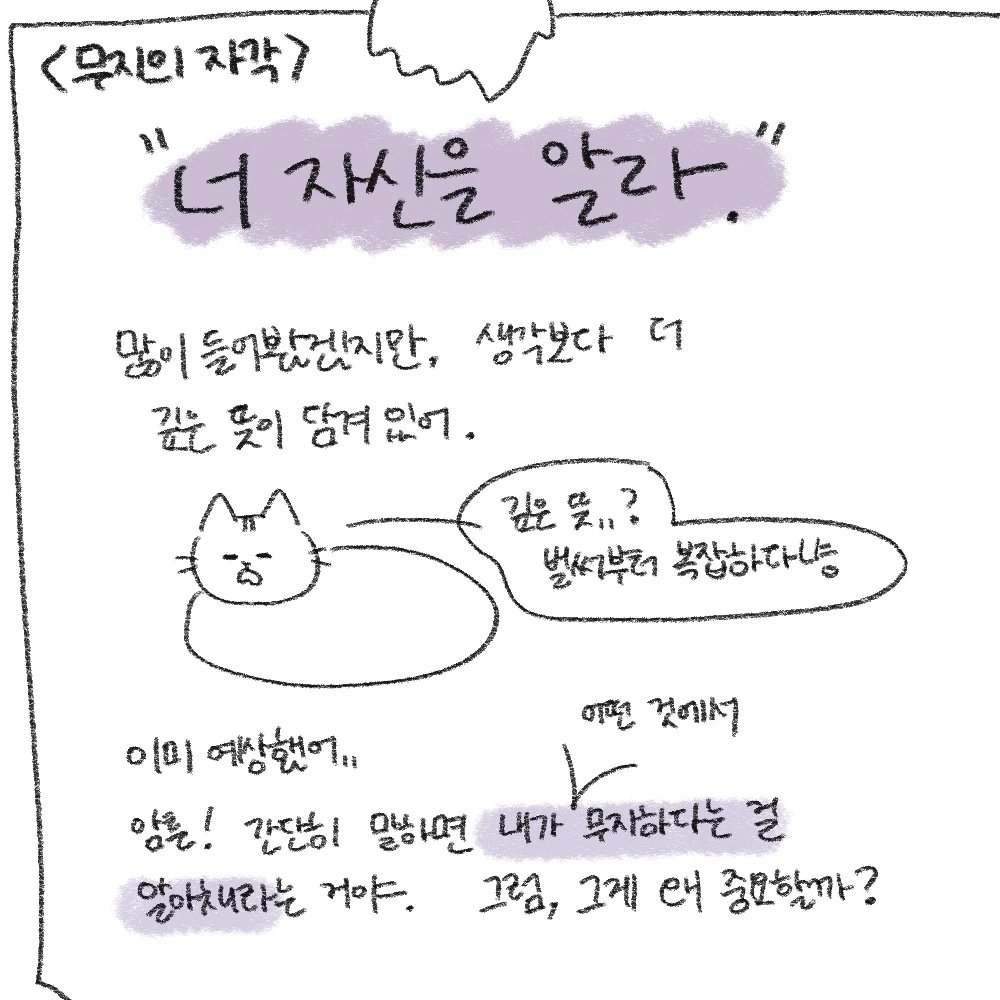 <무지의 자각>
"너 자신을 알라."
많이 들어봤겠지만, 생각보다 더
깊은 뜻이 담겨 있어.
깊은 뜻,,?
벌써부터 복잡하다냥
이미 예상했어,,
어떤 것에서
암튼! 간단히 말하면 내가 무지하다는 걸
알아채라는 거야. 그럼, 그게 왜 중요할까?